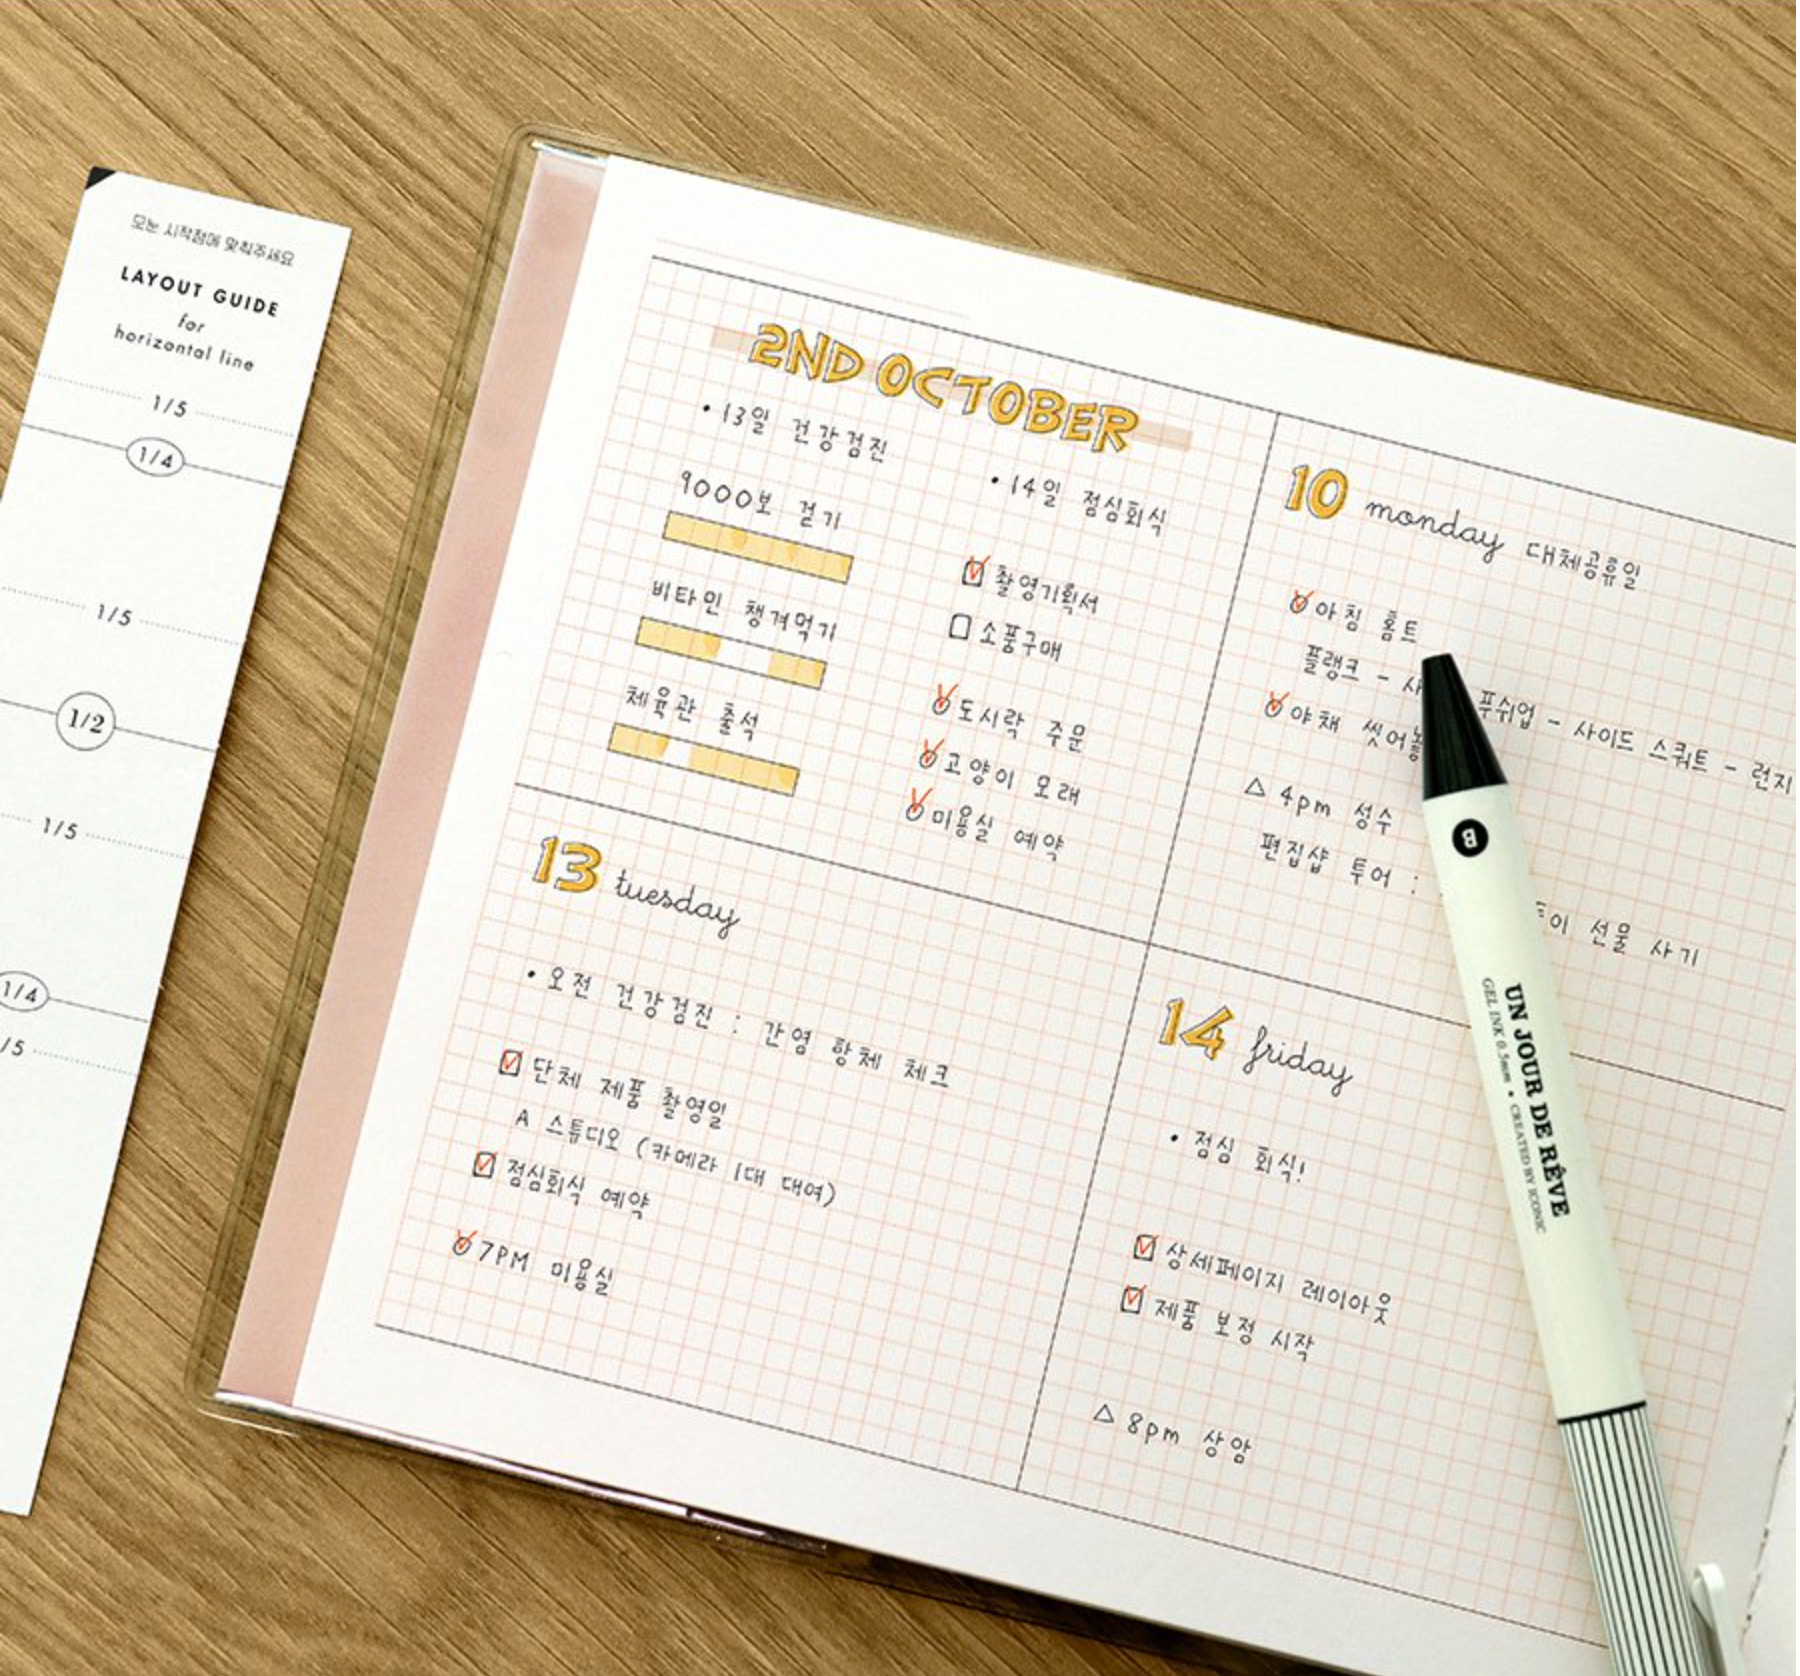 모눈 시작점에 맞춰주세요
LAYOUT GUIDE
for
horizontal line
1/5
1/4
1/5
1/2
1/5
1/4
/5
2ND OCTOBER
• 13일 건강검진
9000보 걷기
비타민 챙겨먹기
체육관 출석
• 14일 점심회식
촬영기획서
소품구매
도시락 주문
고양이 모래
미용실 예약
10 monday 대체공휴일
아침 홈트
플랭크 - 푸쉬업 - 사이드 스쿼트 - 런지
야채 씻어
△ 4pm 성수
편집샵 투어 :
선물 사기
13 tuesday
• 오전 건강검진 : 간염 항체 체크
단체 제품 촬영일
A 스튜디오 (카메라 1대 대여)
점심회식 예약
7PM 미용실
14 friday
• 점심 회식!
상세페이지 레이아웃
제품 보정 시작
△ 8pm 상암
B
UN JOUR DE RÊVE
GEL INK 0.5mm • CREATED BY ICONIC